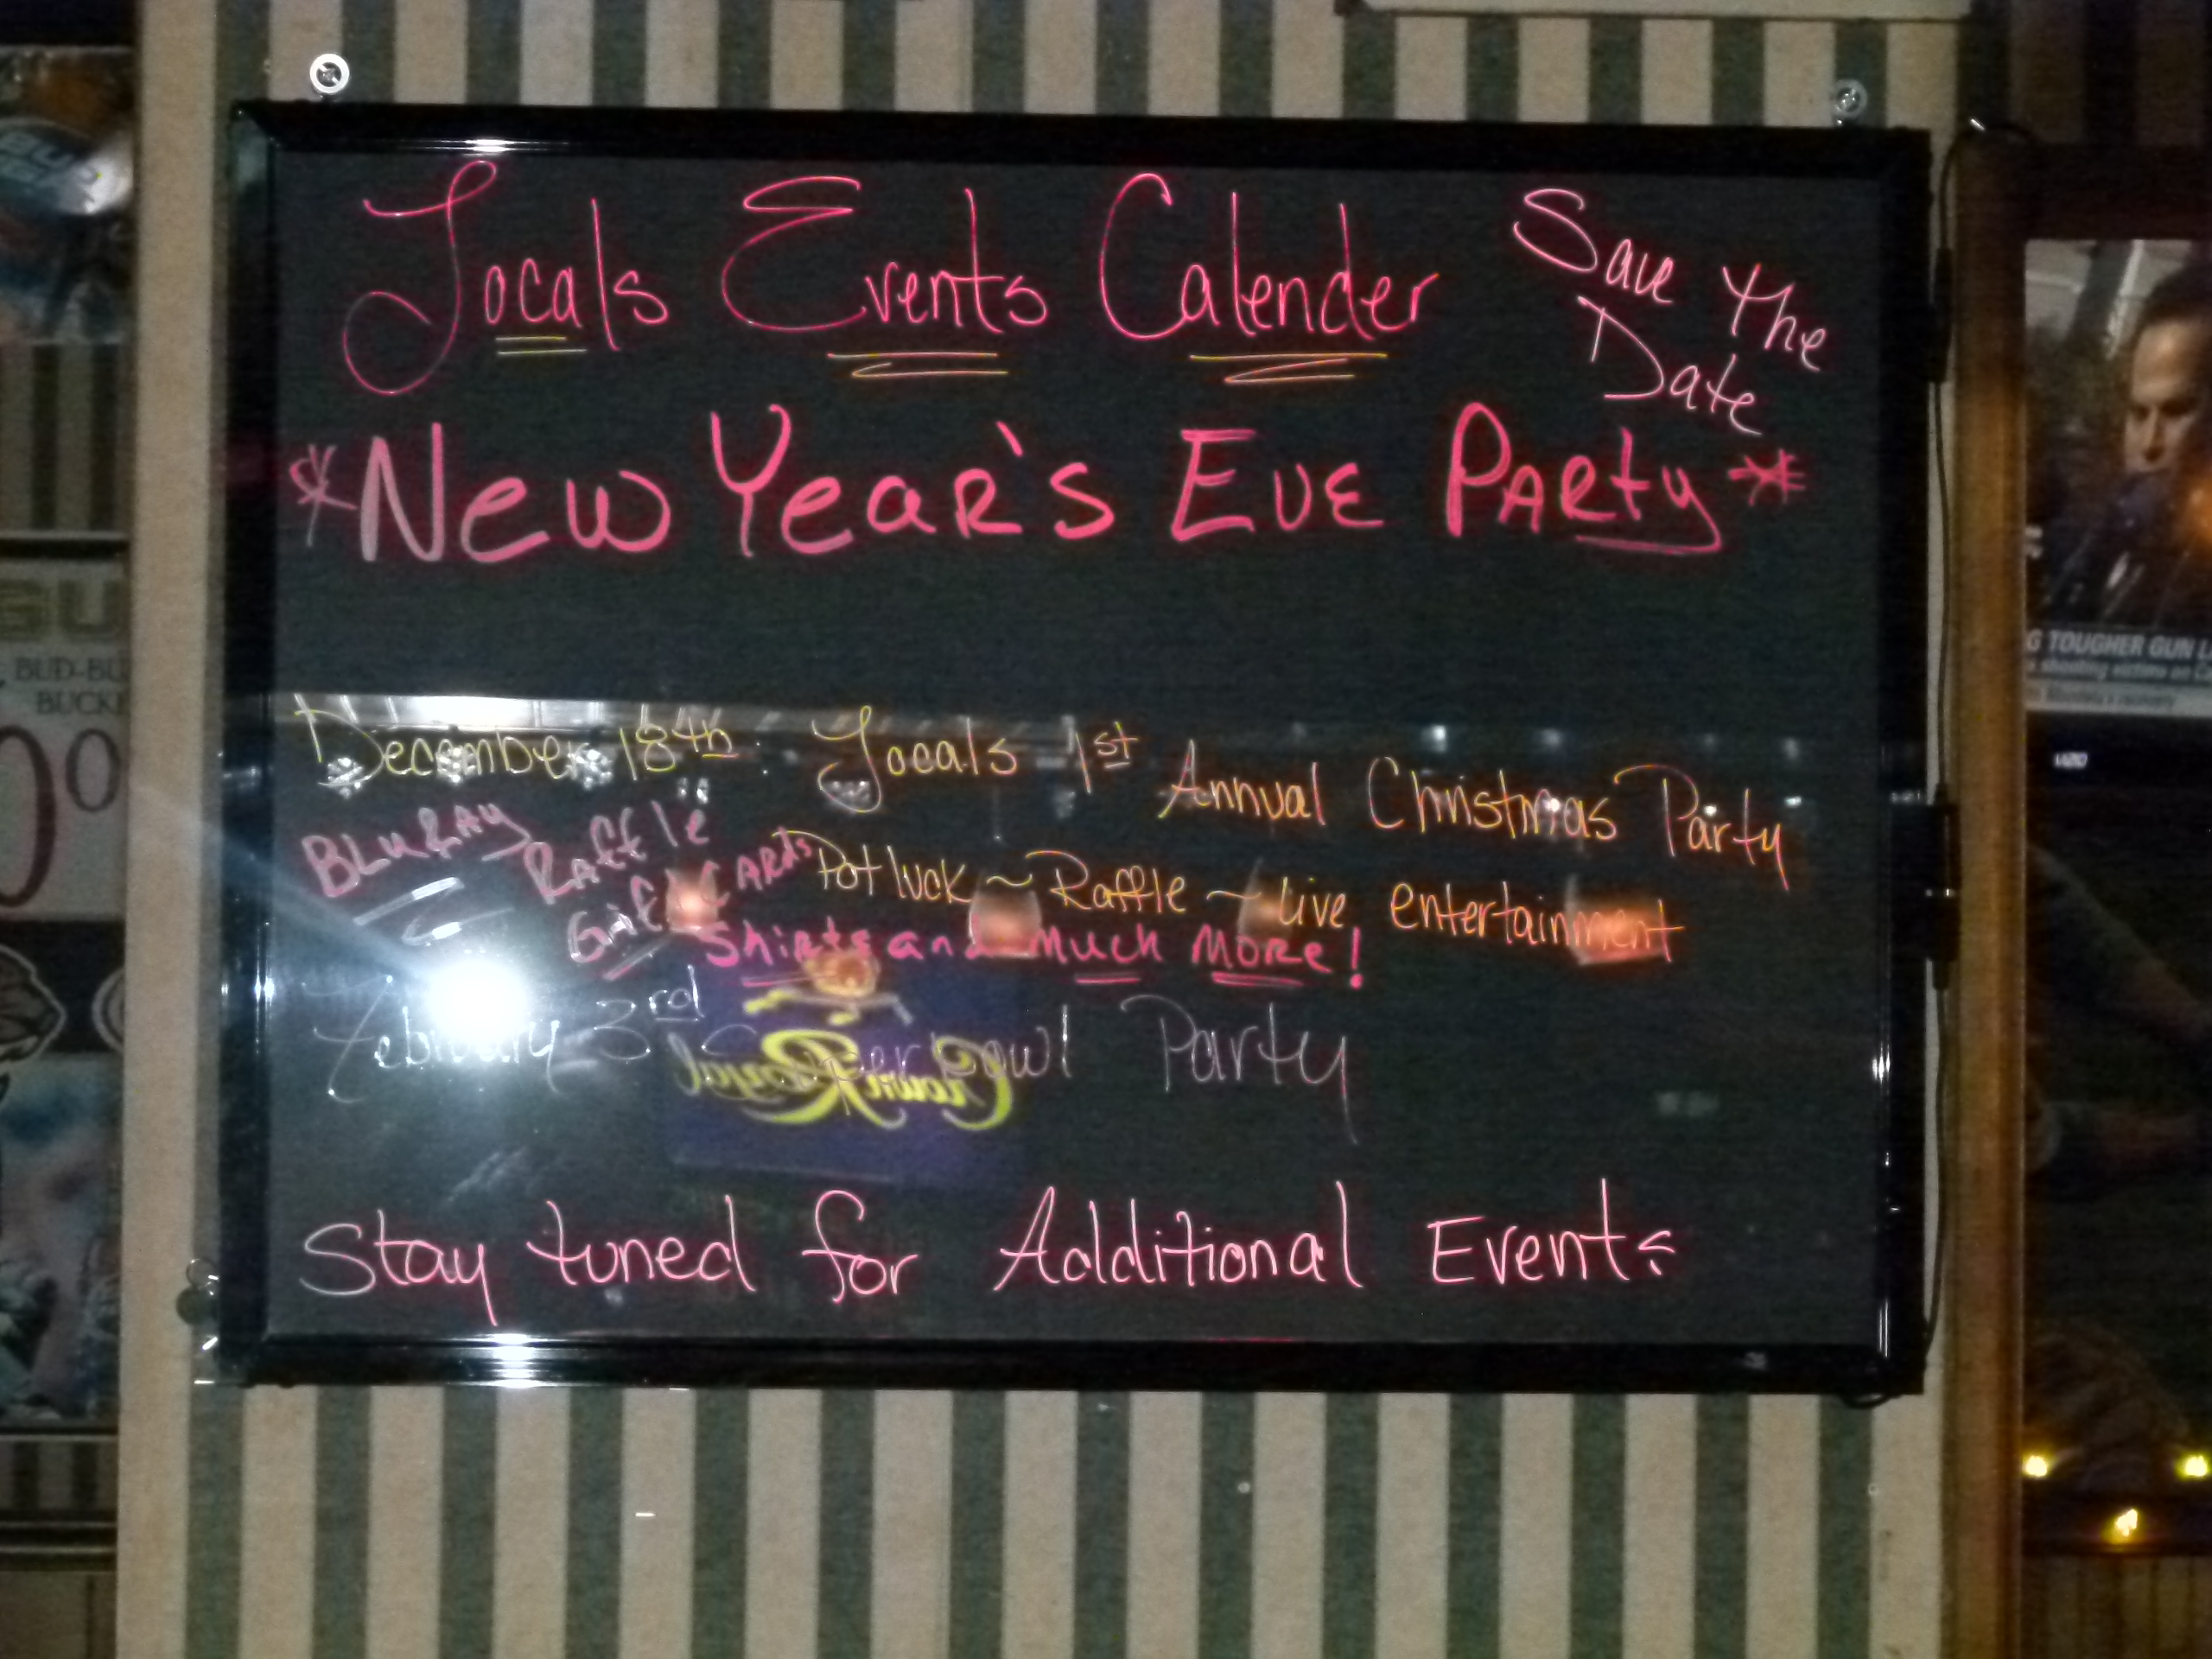 Locals Events Calender
Save The
Date
*New Year's Eve Party*
December 18th Locals 1st Annual Christmas Party
BluRAY Raffle
Gift CARds
Potluck ~ Raffle ~ Live entertainment
Shirts and Much More!
February 3rd Superbowl Party
Crown Royal
Stay tuned for Additional Events
BUD-BU
BUCK
G TOUGHER GUN L
shooting victims on C
VIZIO